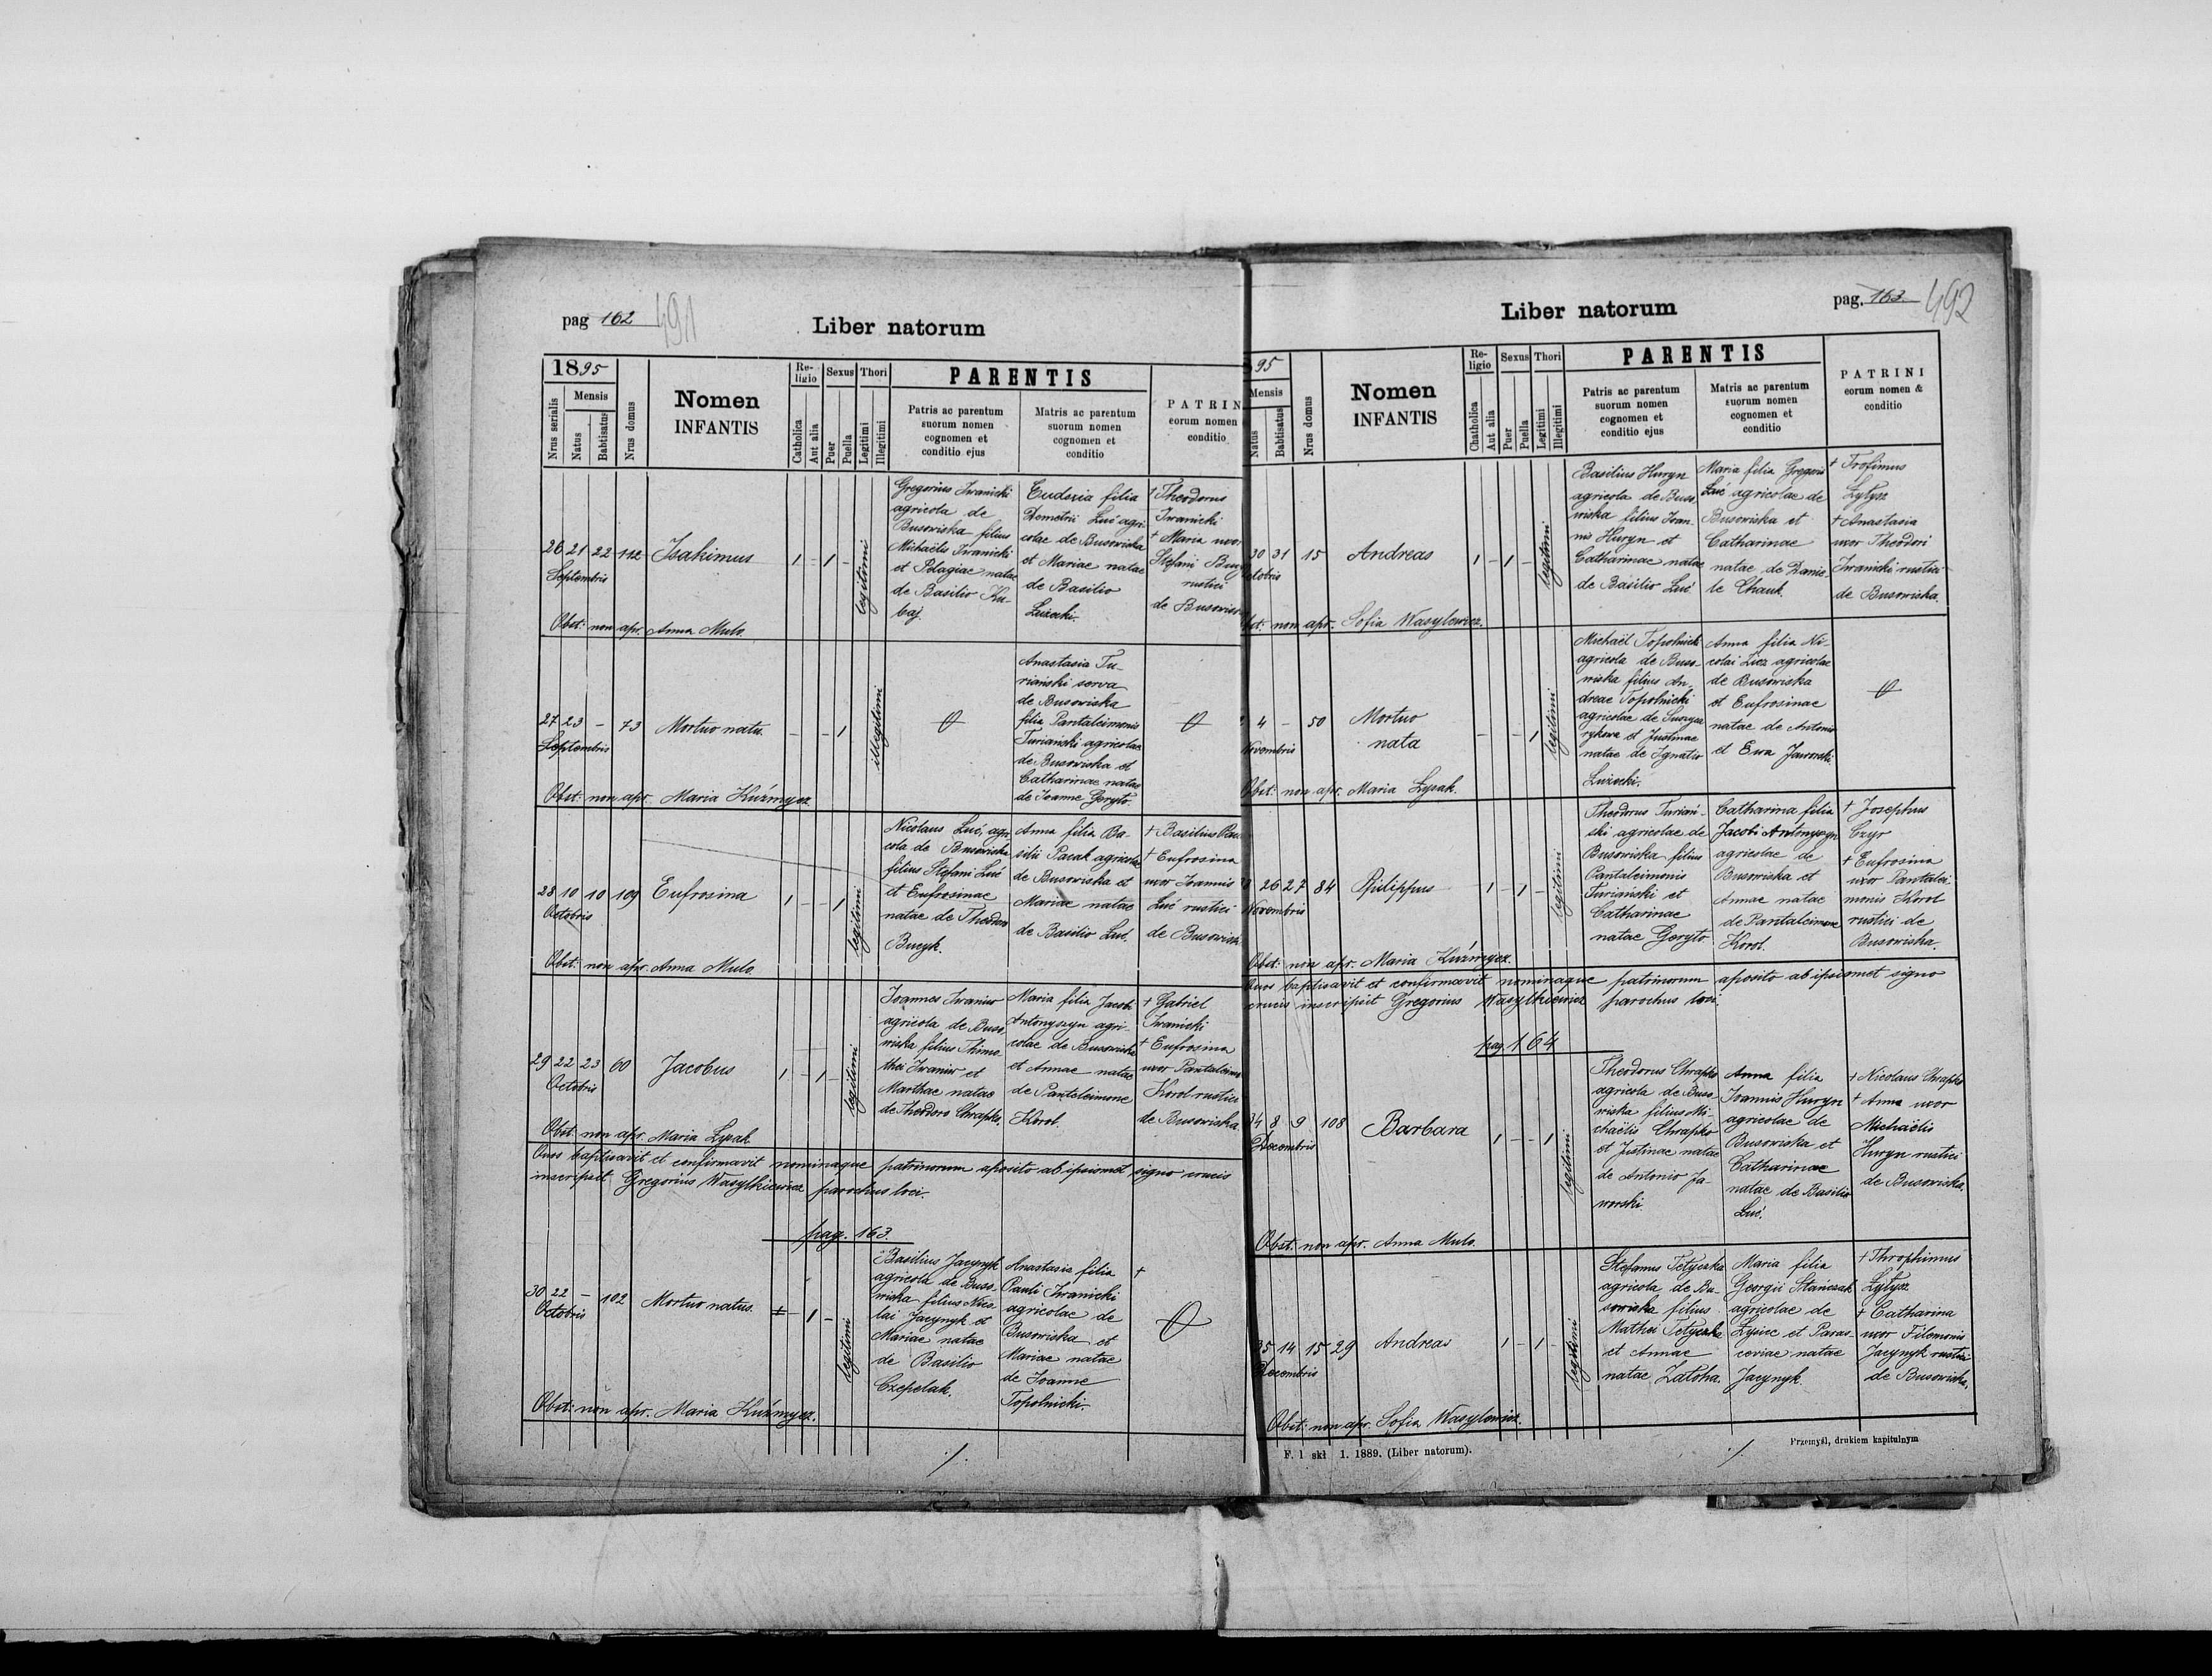 pag 162 491
Liber natorum
1895
Nrus serialis
Mensis
Natus
Babtisatus
Nrus domus
Nomen
INFANTIS
Re-
ligio
Catholica
Aut alia
Sexus
Puer
Puella
Thori
Legitimi
Illegitimi
PARENTIS
Patris ac parentum
suorum nomen
cognomen et
conditio ejus
Matris ac parentum
suorum nomen
cognomen et
conditio
PATRIN
eorum nomen
conditio
26 21 22 112 Isakimus 1 - 1 -
Septembris
legitimi
Gregorius Iwanicki
agricola de
Busowiska filius
Michaëlis Iwanicki
et Pelagiae natae
de Basilio Ku-
baj.
Eudoxia filia
Demetrii Luć agri-
colae de Busowiska
et Mariae natae
de Basilio
Łużecki.
† Theodorus
Iwanicki
† Maria uxor
Stefani
rustici
de Busowis
Obst: non apr. Anna Mulo.
27 23 - 73 Mortuo natu. - - 1
Septembris
illegitimi
Anastasia Tu-
riański serva
de Busowiska
filia Pantaleimonis
Turiański agricolae
de Busowiska et
Catharinae natae
de Joanne Geryto.
Obst: non apr. Maria Kuźmycz.
28 10 10 109 Eufrosina 1 - - 1
Octobris
legitimi
Nicolaus Luć, agri-
cola de Busowiska
filius Stefani Luć
et Eufrosinae
natae de Theodoro
Bucyk.
Anna filia Ba-
silii Pacak agricolae
de Busowiska et
Mariae natae
de Basilio Luć.
† Basilius
† Eufrosina
uxor Ioannis
Luć rustici
de Busowisk
Obst: non apr. Anna Mulo.
29 22 23 60 Jacobus 1 - 1 -
Octobris
legitimi
Joannes Iwaniw
agricola de Buso-
wiska filius Thimo-
thei Iwaniw et
Marthae natae
de Theodoro Chrapko.
Maria filia Jacobi
Antonyszyn agri-
colae de Busowiska
et Annae natae
de Panteleimone
Korol.
† Gabriel
Iwanicki
† Eufrosina
uxor Pantaleimo
Korol rustici
de Busowiska
Obst: non apr. Maria Lysak
Quos baptisavit et confirmavit nominaque patrinorum aposito ab ipsismet signo crucis
inscripsit Gregorius Wasylkiewicz parochus loci.
pag. 163.
30 22 - 102 Mortuo natus. ± - 1 -
Octobris
legitimi
Basilius Jacynyk
agricola de Buso-
wiska filius Nico-
lai Jacynyk et
Mariae natae
de Basilio
Czepelak.
Anastasia filia
Pauli Iwanicki
agricolae de
Busowiska et
Mariae natae
de Joanne
Topolnicki.
†
Obst: non apr. Maria Kuźmycz.
Liber natorum
pag. 163. 492
95
Mensis
Natus
Babtisatus
Nrus domus
Nomen
INFANTIS
Re-
ligio
Chatholica
Aut alia
Sexus
Puer
Puella
Thori
Legitimi
Illegitimi
PARENTIS
Patris ac parentum
suorum nomen
cognomen et
conditio ejus
Matris ac parentum
suorum nomen
cognomen et
conditio
PATRINI
eorum nomen &
conditio
30 31 15 Andreas 1 - 1 -
ctobris
legitimi
Basilius Huryn
agricola de Buso-
wiska filius Joan-
nis Huryn et
Catharinae natae
de Basilio Luć.
Maria filia Gregorii
Luć agricolae de
Busowiska et
Catharinae
natae de Danie-
le Chauk.
† Trofimus
Łytysz
† Anastasia
uxor Theodori
Iwanicki rustici
de Busowiska.
bst: non apr. Sofia Wasylewicz.
4 - 50 Mortuo
nata - - 1
Novembris
legitimi
Michaël Topolnicki
agricola de Buso-
wiska filius An-
dreae Topolnicki
agricolae de Suszyca
rykowa et Justinae
natae de Ignatio
Łużecki.
Anna filia Ni-
colai Licz agricolae
de Busowiska
et Eufrosinae
natae de Antonio
et Ewa Jaworski
Obst: non apr. Maria Lysak.
26 27 84 Philippus 1 - 1 -
Novembris
legitimi
Theodorus Turiań-
ski agricolae de
Busowiska filius
Pantaleimonis
Turiański et
Catharinae
natae Geryto
Catharina filia
Jacobi Antonyszyn
agricolae de
Busowiska et
Annae natae
de Pantaleimone
Korol.
† Josephus
Czyr
† Eufrosina
uxor Pantalei-
monis Korol
rustici de
Busowiska.
Obst: non apr. Maria Kuźmycz.
Quos baptisavit et confirmavit nominaque patrinorum aposito ab ipsismet signo
crucis inscripsit Gregorius Wasylkiewicz parochus loci.
pag. 164
34 8 9 108 Barbara 1 - - 1
Decembris
legitimi
Theodorus Chrapko
agricola de Buso-
wiska filius Mi-
chaëlis Chrapko
et Justinae natae
de Antonio Ja-
worski.
Anna filia
Joannis Huryn
agricolae de
Busowiska et
Catharinae
natae de Basilio
Luć.
† Nicolaus Chrapko
† Anna uxor
Michaëlis
Huryn rustici
de Busowiska.
Obst: non apr. Anna Mulo.
35 14 15 29 Andreas 1 - 1 -
Decembris
legitimi
Stefanus Tetyczka
agricola de Bu-
sowiska filius
Mathei Tetyczka
et Annae
natae Zatoha.
Maria filia
Georgii Stańczak
agricolae de
Łysiec et Paras-
ceviae natae
Jacynyk.
† Throphimus
Łytysz
† Catharina
uxor Filemonis
Jacynyk rustici
de Busowiska.
Obst: non apr. Sofia Wasylewicz.
F. 1 skł 1. 1889. (Liber natorum).
Przemyśl, drukiem kapitulnym